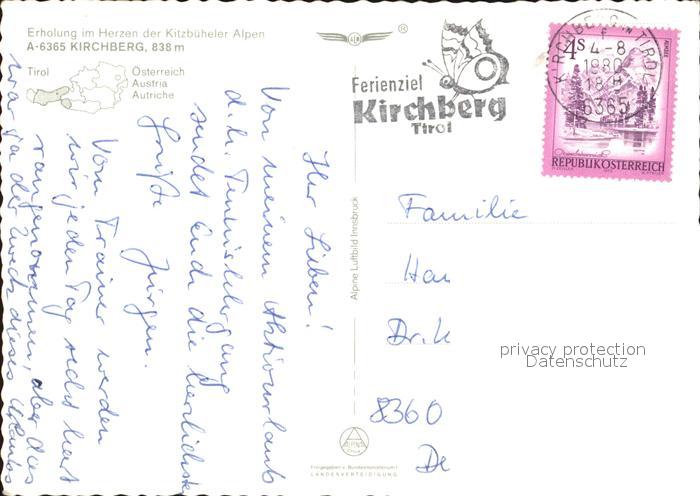 Erholung im Herzen der Kitzbüheler Alpen
A-6365 KIRCHBERG, 838 m
Tirol
Österreich
Austria
Autriche
Ihr Lieben!
Von meinem Aktivurlaub
d.h. Tennislehrgang
sendet Euch die herzlichsten
Grüße Jürgen.
Vom Trainer werden
wir jeden Tag recht hart
rangenommen, aber das
war ja der Zweck dieses Urlaubs
ALPINE
Freigegeben v. Bundesministerium f.
LANDESVERTEIDIGUNG
Alpine Luftbild Innsbruck
Ferienziel
Kirchberg
Tirol
KIRCHBERG IN TIROL
4-8
1980
18
6365
4S
REPUBLIK ÖSTERREICH
Familie
Han
Dr.k
8360
De
privacy protection
Datenschutz